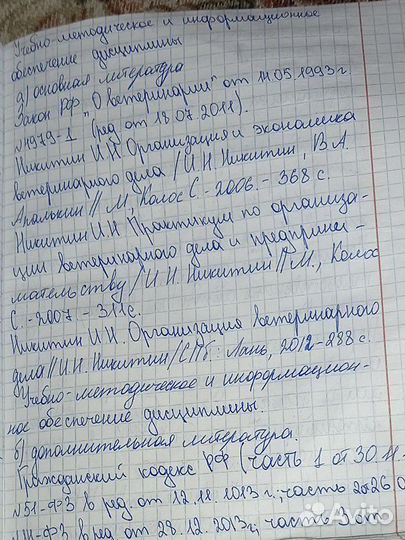 Учебно-методическое и информационное
обеспечение дисциплины
а) основная литература
Закон РФ „О ветеринарии" от 14.05.1993 г.
№4979-1 (ред от 18.07.2011).
Никитин И.Н. Организация и экономика
ветеринарного дела / И.Н. Никитин, В.А.
Апалькин // М, Колос С. - 2006. - 368 с.
Никитин И.Н Практикум по организа-
ции ветеринарного дела и предприни-
мательству / И.Н. Никитин // М., Колос
С. - 2007 - 311 с.
Никитин И.Н. Организация ветеринарного
дела // И.Н. Никитин / СПб: Лань, 2012 - 288 с.
Учебно-методическое и информацион-
ное обеспечение дисциплины.
б) дополнительная литература.
Гражданский кодекс РФ (часть 1 от 30.11.
№51-ФЗ в ред. от
в ред от 28.12.2013 г; часть 3 от
Avito